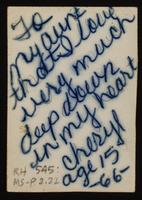 To
my aunt
that I love
very much
deep down
in my heart
cheryl
age 15
-66-
RH 545:
MS-P.2.22